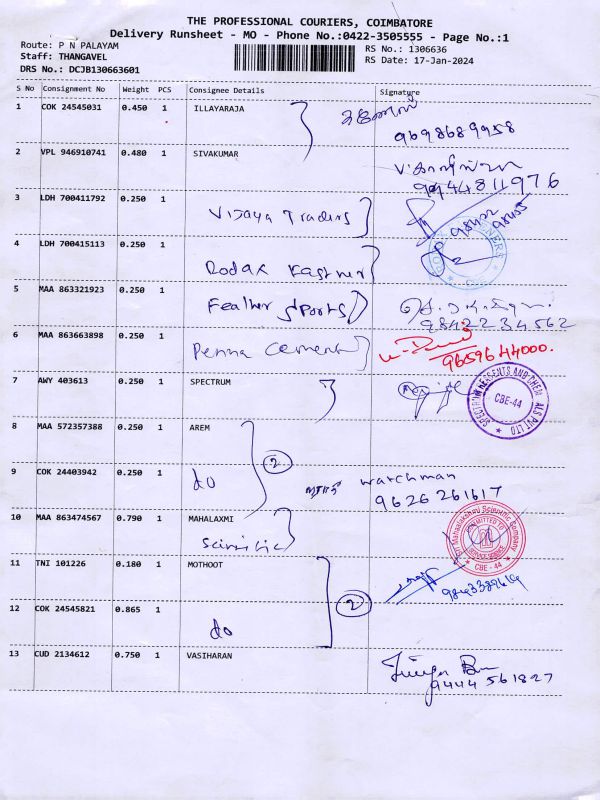 THE PROFESSIONAL COURIERS, COIMBATORE
Delivery Runsheet - MO - Phone No.:0422-3505555 - Page No.:1
Route: P N PALAYAM RS No.: 1306636
Staff: THANGAVEL RS Date: 17-Jan-2024
DRS No.: DCJB130663601
S No Consignment No Weight PCS Consignee Details Signature
1 COK 24545031 0.450 1 ILLAYARAJA
9698689958
2 VPL 946910741 0.480 1 SIVAKUMAR
9944811976
3 LDH 700411792 0.250 1
Vijaya Traders
4 LDH 700415113 0.250 1
5 MAA 863321923 0.250 1
Feather Sports
9842234562
6 MAA 863663898 0.250 1
Penna Cement
9659644000.
7 AWY 403613 0.250 1 SPECTRUM
CBE-44
8 MAA 572357388 0.250 1 AREM
2
9 COK 24403942 0.250 1 do watchman
9626261617
10 MAA 863474567 0.790 1 MAHALAXMI
CBE - 44
11 TNI 101226 0.180 1 MOTHOOT
2
12 COK 24545821 0.865 1
do
13 CUD 2134612 0.750 1 VASIHARAN
9444 561827